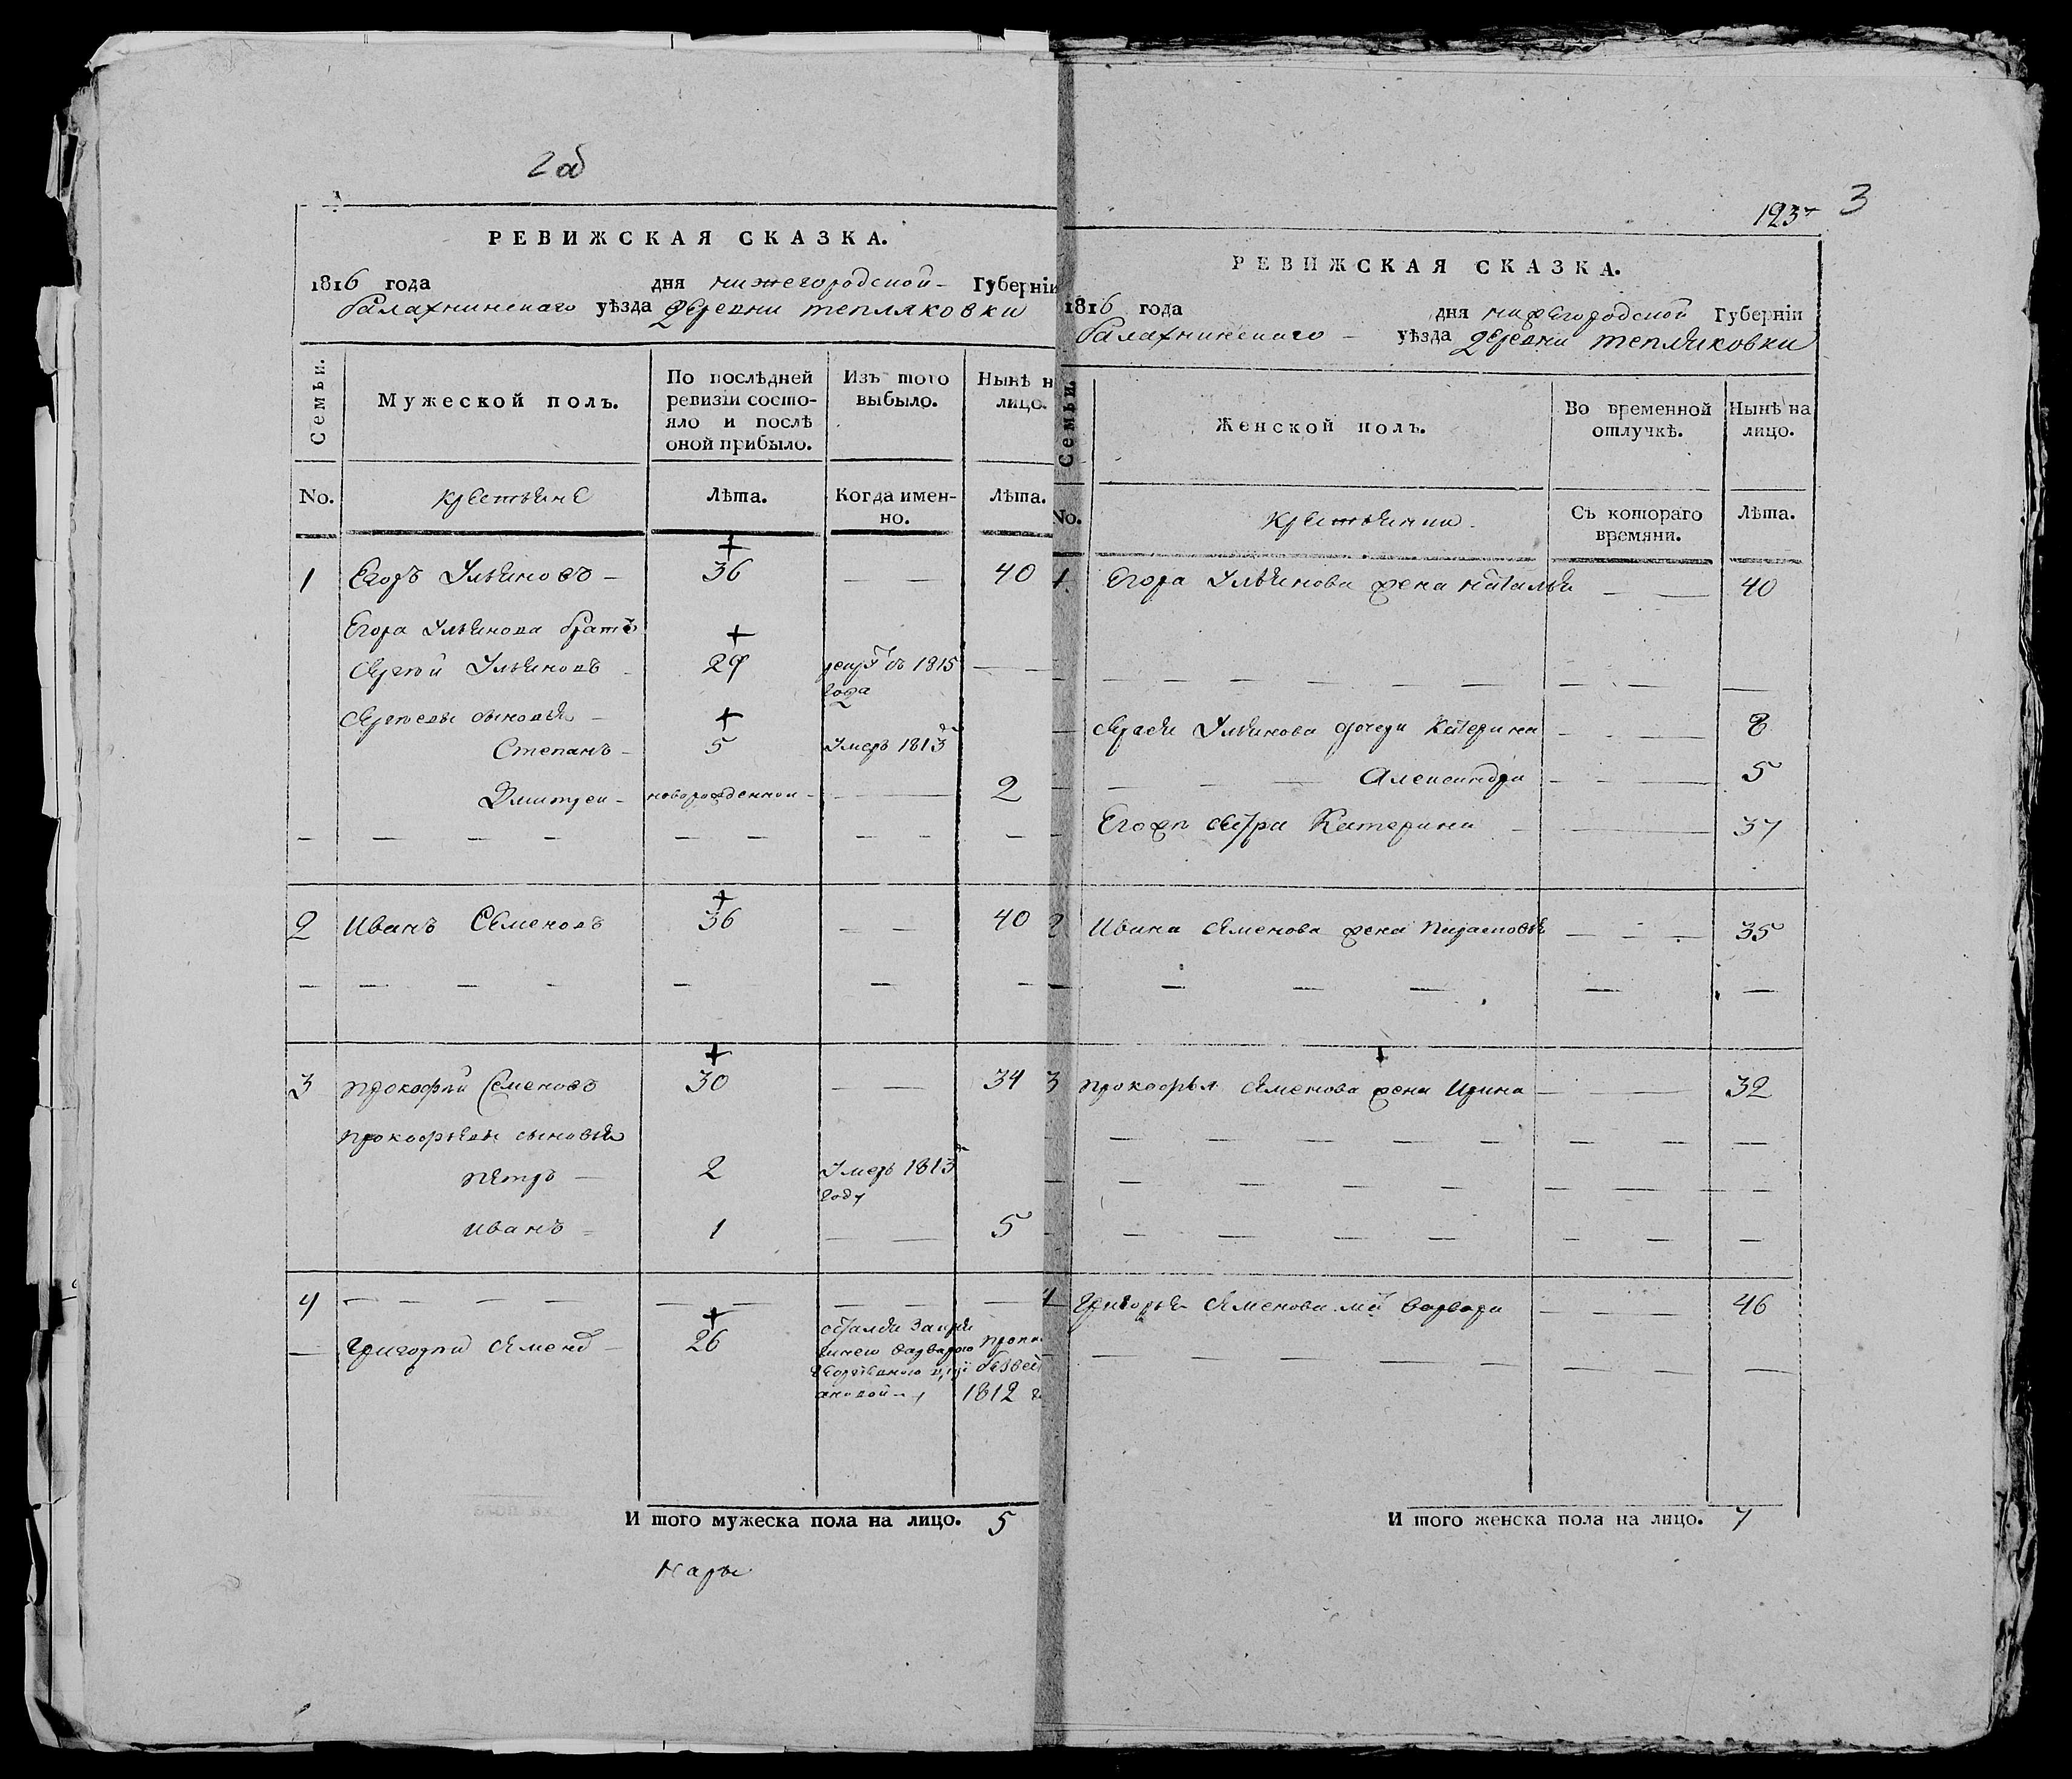 2 об
РЕВИЖСКАЯ СКАЗКА.
1816 года дня нижегородской Губерніи
балахнинскаго уѣзда деревни тепляковки
Семьи.
Мужеской полъ.
По послѣдней
ревизіи состо-
яло и послѣ
оной прибыло.
Изъ того
выбыло.
Нынѣ н
лицо.
No.
крестьяне
Лѣта.
Когда имен-
но.
Лѣта.
1 Егоръ Ульяновъ 36 — — 40
Егора Ульянова братъ
Сергѣй Ульяновъ 29 въ 1815 —
года
Сергѣевы сыновья
Степанъ 5 умеръ 1813
Дмитреи новорожденной — 2
2 Иванъ Семеновъ 36 — — 40
3 прокофѣй Семеновъ 30 — — 34
прокофьевы сыновья
пётръ 2 умеръ 1813
году
иванъ 1 — — 5
4 — — — —
Григорѣй 26
1812
И того мужеска пола на лицо. 5
1237 3
РЕВИЖСКАЯ СКАЗКА.
1816 года дня нижегородской Губерніи
балахнинскаго — уѣзда деревни тепляковки
Семьи.
Женской полъ.
Во временной
отлучкѣ.
Нынѣ на
лицо.
No.
крестьянки
Съ котораго
времяни.
Лѣта.
1 Егора Ульянова жена наталья — — 40
Сергея Ульянова дочери Катерина — — 8
— — — Александра — — 5
Егожъ сестра Катерина — 37
2 Ивана семенова жена — — — 35
3 прокофья семенова жена Ирина — — 32
4 Григорья семенова варвара — — — 46
И того женска пола на лицо. 7